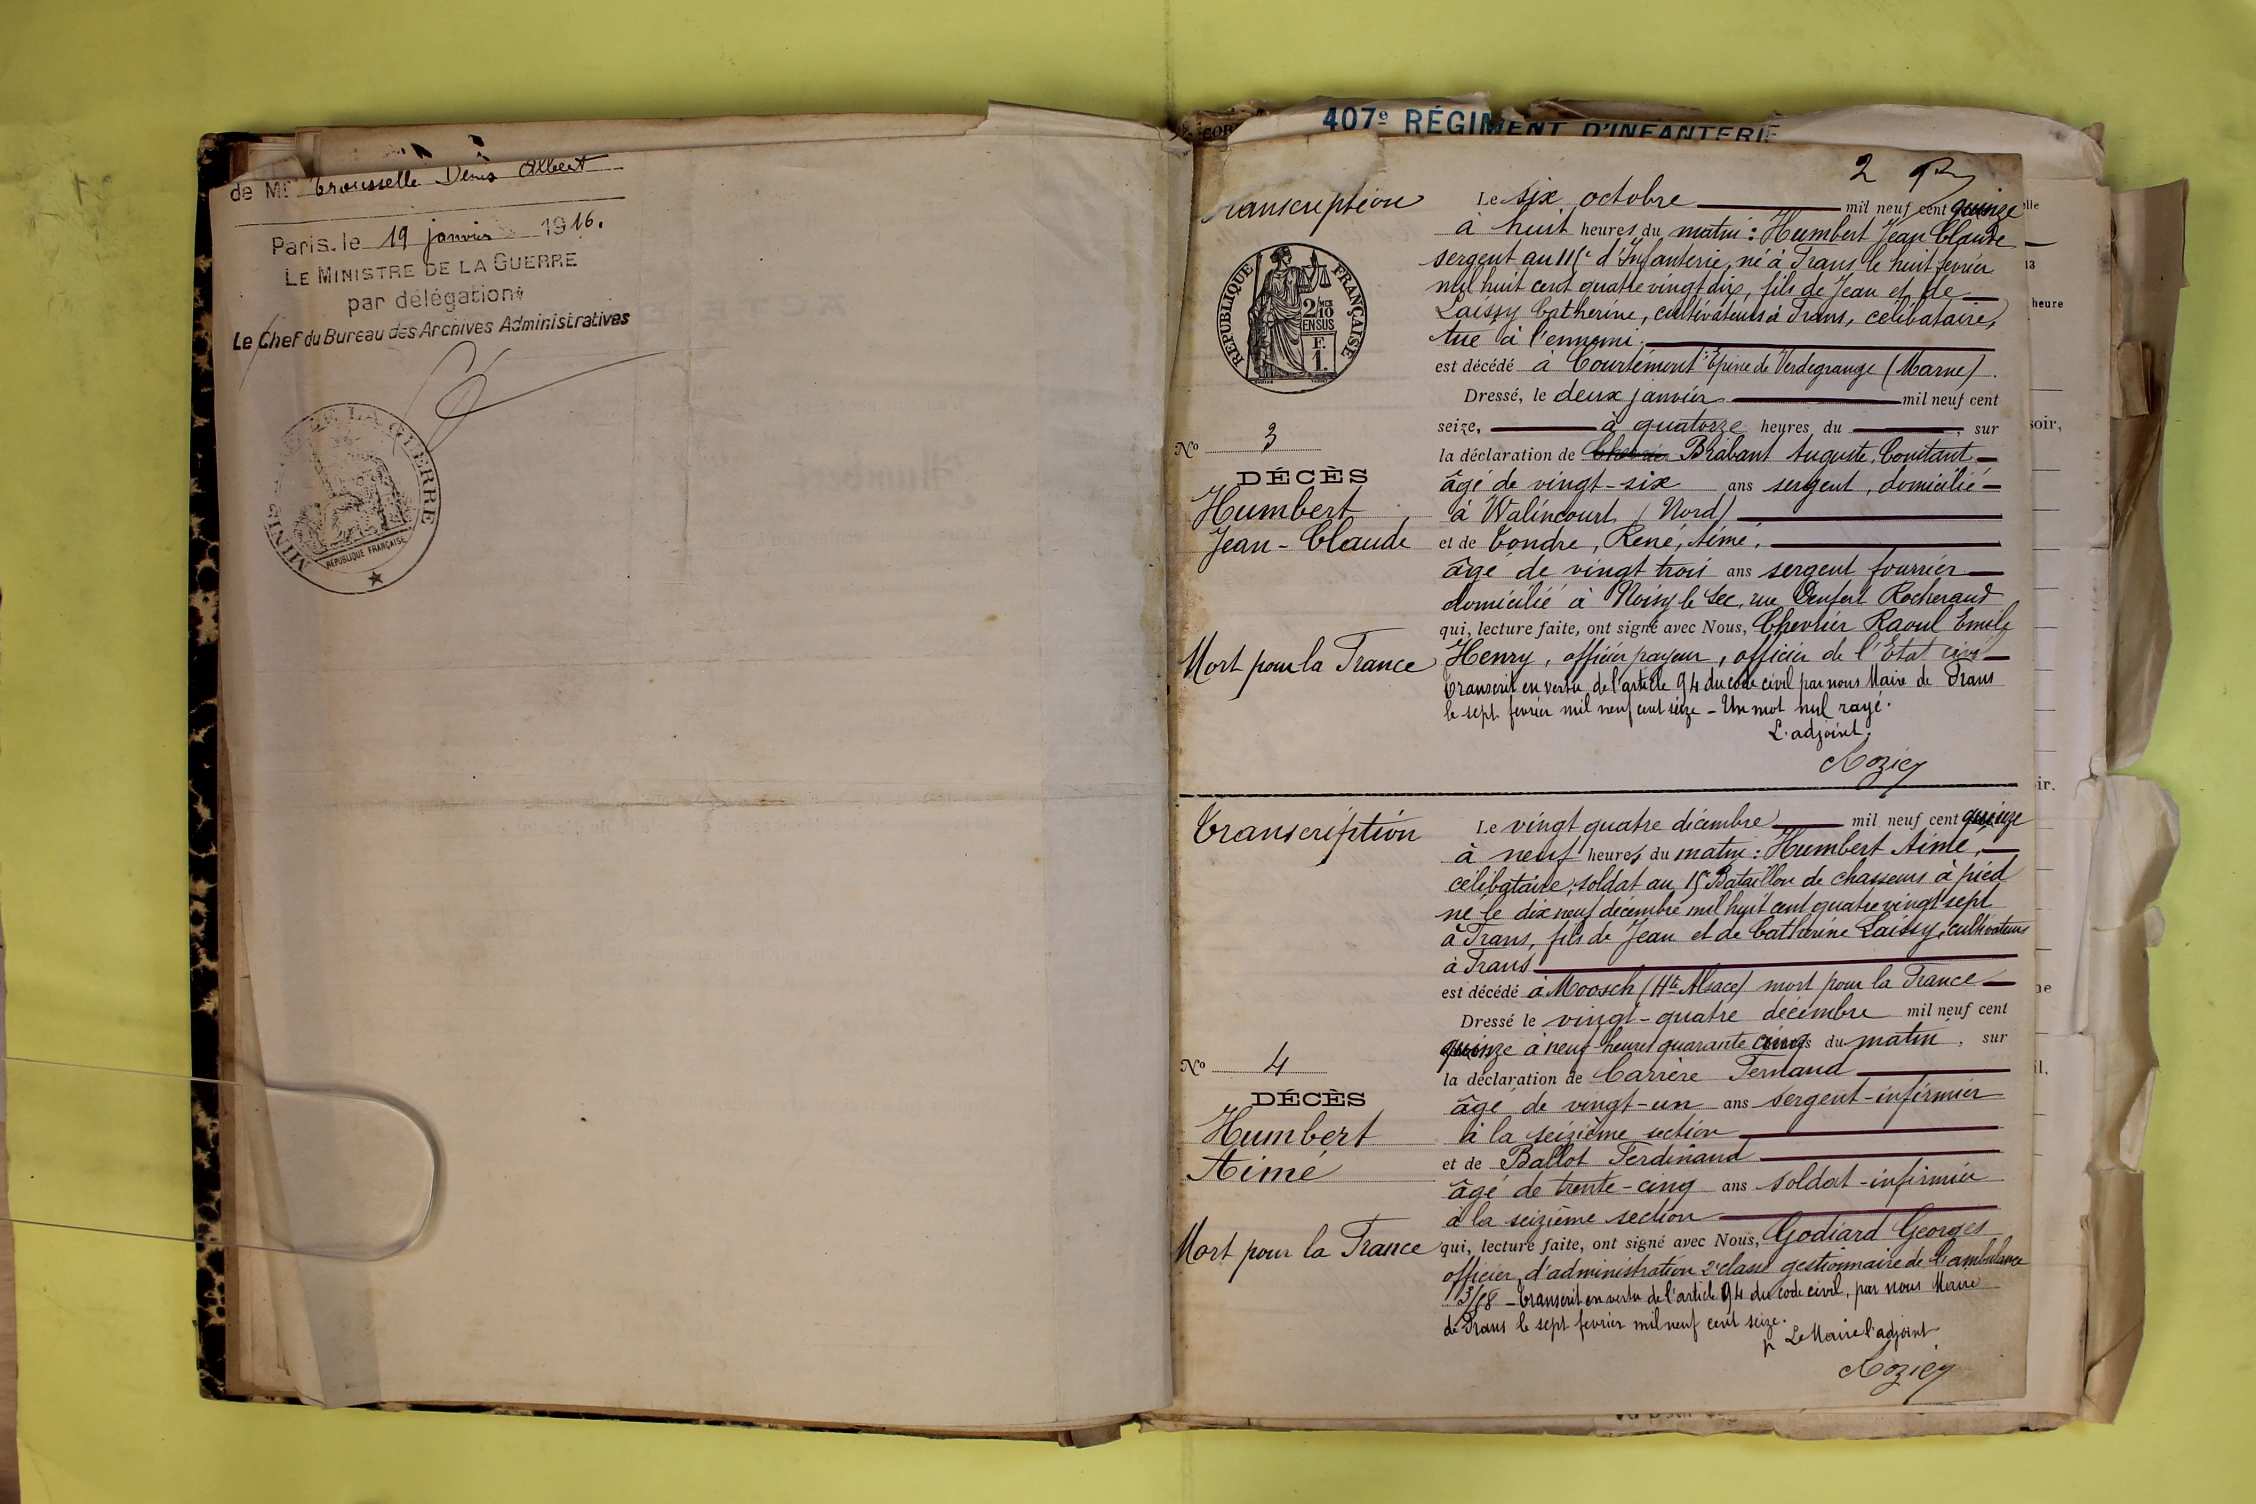 de Mr Trousselle Denis Albert
Paris, le 19 janvier 1916.
LE MINISTRE DE LA GUERRE
par délégation
Le Chef du Bureau des Archives Administratives
MINISTÈRE DE LA GUERRE
RÉPUBLIQUE FRANÇAISE
407e RÉGIMENT D'INFANTERIE
2
Transcription
RÉPUBLIQUE FRANÇAISE
2/10 MES
EN SUS
F.
1.
No 3
DÉCÈS
Humbert
Jean-Claude
Mort pour la France
Le six octobre mil neuf cent quinze
à huit heures du matin : Humbert Jean Claude
sergent au d'Infanterie, né à Trans le huit février
mil huit cent quatre vingt dix, fils de Jean et de
Laissy Catherine, cultivateurs à Trans, célibataire,
tué à l'ennemi.
est décédé à Courtémont Epine de Verdegrange (Marne).
Dressé, le deux janvier mil neuf cent
seize, à quatorze heures du , sur
la déclaration de Brabant Auguste, Constant
âgé de vingt-six ans sergent, domicilié
à Walincourt (Nord)
et de Condre, René, Aimé,
âgé de vingt trois ans sergent fourrier
domicilié à Noisy le Sec, rue Denfert Rochereau
qui, lecture faite, ont signé avec Nous, Chevrier Raoul Emile
Henry, officier payeur, officier de l'Etat civil
Transcrit en vertu de l'article 94 du code civil par nous Maire de Trans
le sept février mil neuf cent seize - Un mot nul rayé.
L'adjoint,
Rozier
Transcription
No 4
DÉCÈS
Humbert
Aimé
Mort pour la France
Le vingt quatre décembre mil neuf cent quinze
à neuf heures du matin : Humbert Aimé,
célibataire, soldat au 15e Bataillon de chasseurs à pied
né le dix neuf décembre mil huit cent quatre vingt sept
à Trans, fils de Jean et de Catherine Laissy, cultivateurs
à Trans
est décédé à Moosch (Hte Alsace) mort pour la France
Dressé le vingt-quatre décembre mil neuf cent
quinze à neuf heures quarante cinq du matin, sur
la déclaration de Carrère Fernand
âgé de vingt-un ans sergent-infirmier
à la seizième section
et de Ballot Ferdinand
âgé de trente-cinq ans soldat-infirmier
à la seizième section
qui, lecture faite, ont signé avec Nous, Godiard Georges
officier d'administration 2e classe gestionnaire de l'ambulance
3/58 - Transcrit en vertu de l'article 94 du code civil, par nous Maire
de Trans le sept février mil neuf cent seize.
p Le Maire l'adjoint
Rozier